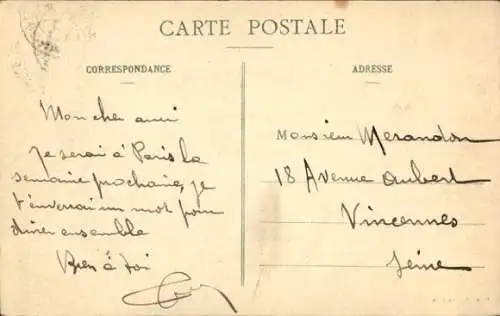 CARTE POSTALE
CORRESPONDANCE
Mon cher ami
Je serai à Paris la
semaine prochaine, je
t'enverrai un mot pour
diner ensemble
Bien à toi
ADRESSE
Monsieur Merandon
18 Avenue Aubert
Vincennes
Seine